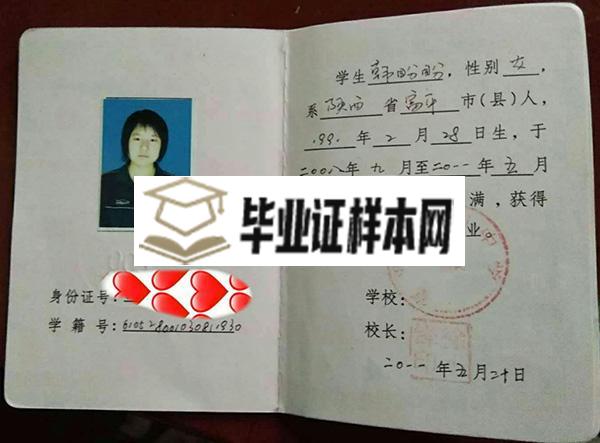 身份证号:
学籍号:6105280001030811930
学生韩盼盼,性别女,
系陕西省富平市(县)人,
199 年2月28日生,于
二00八年九月至二0一一年五月
满,获得
业。
毕业证样本网
学校:
校长:
二0一一年五月二十日